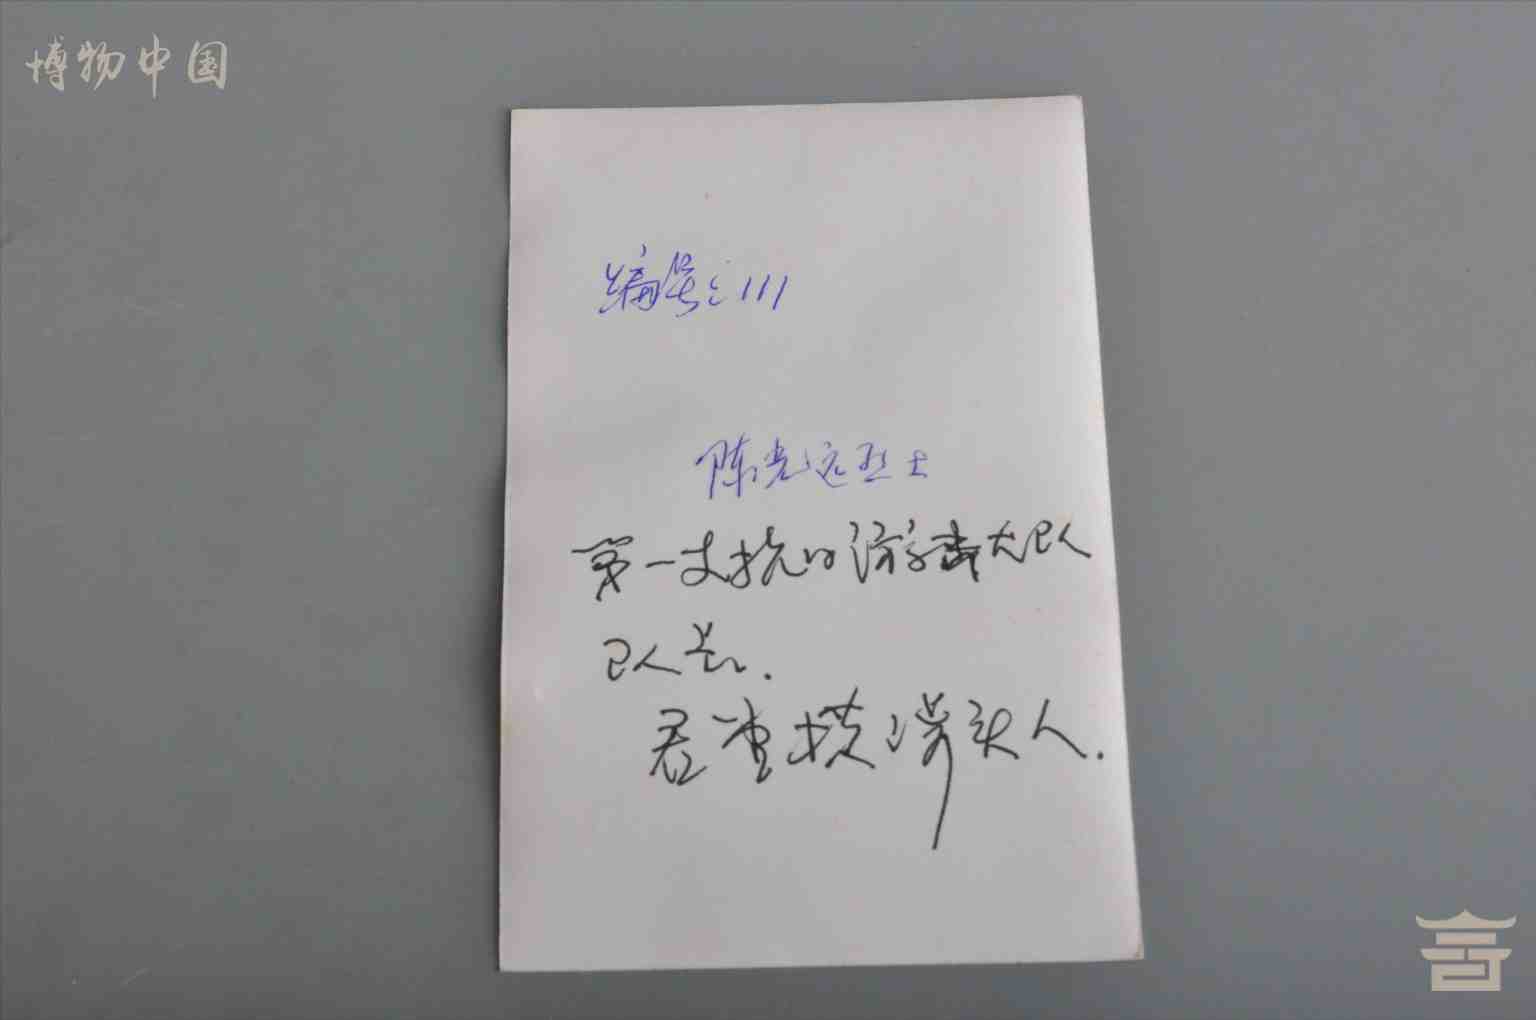 博物中国
编号：111
陈光远烈士
第一支抗日游击大队
队长.
君堂横涝头人.